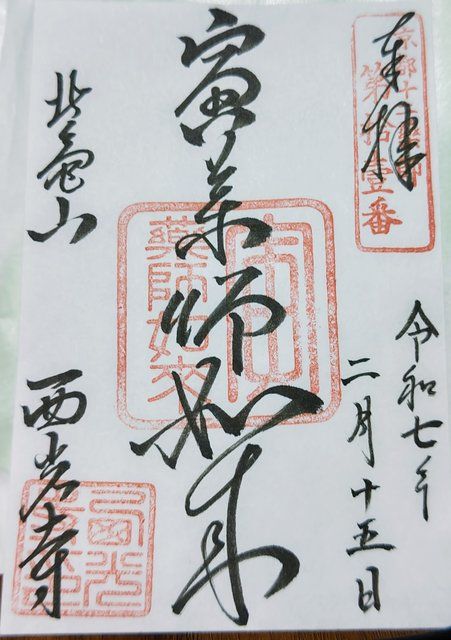 奉拝
京都十二薬師
第拾壹番
令和七年
二月十五日
寅薬師如来
藥師如来
北亀山
西光寺